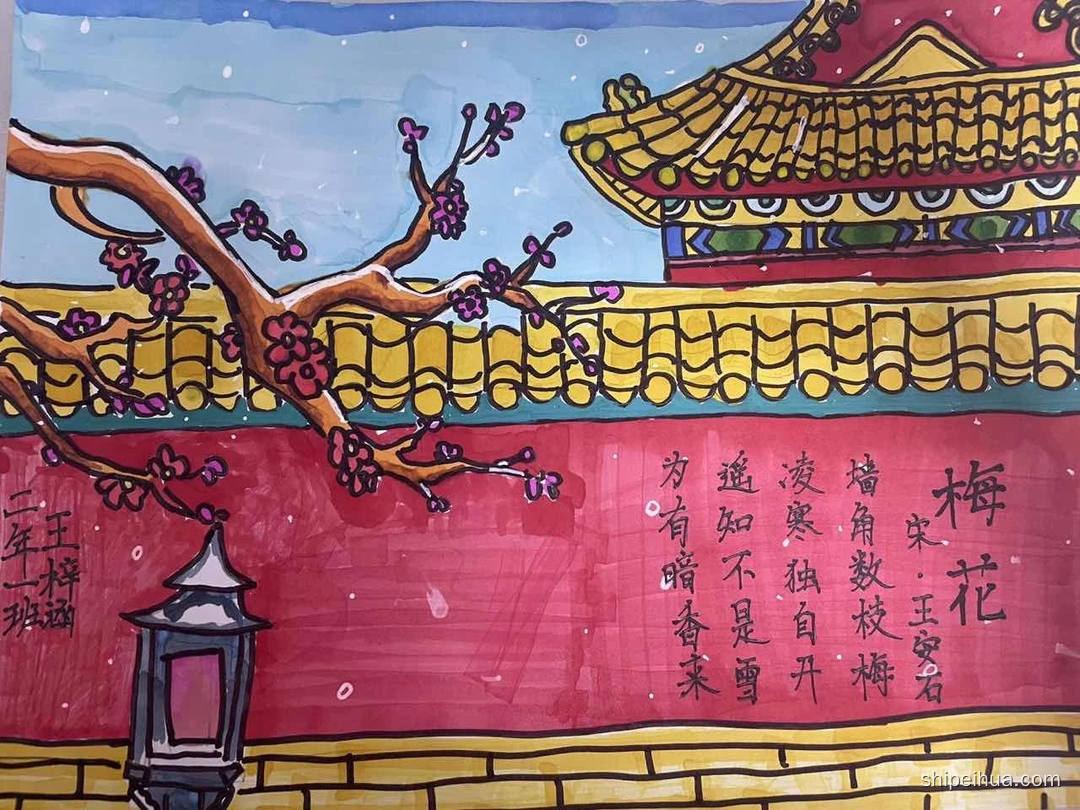 梅花
宋·王安石
墙角数枝梅
凌寒独自开
遥知不是雪
为有暗香来
王梓涵
二年一班
shipeihua.com